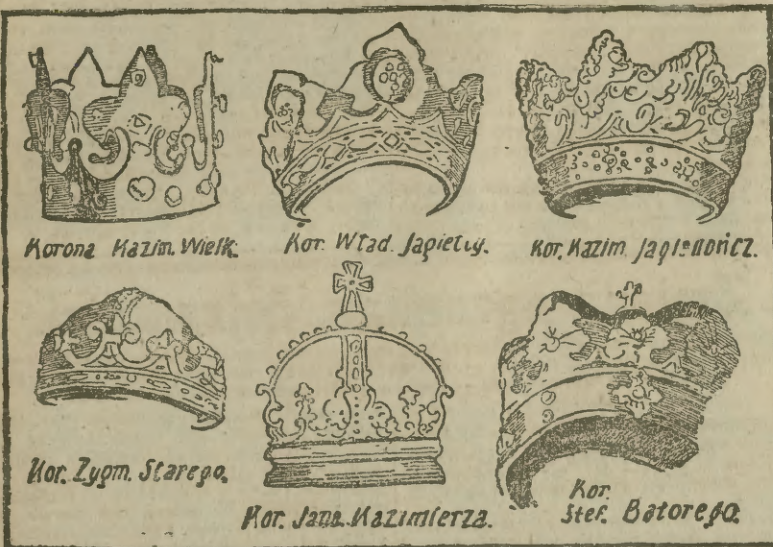 Korona Kazim. Wielk.
Kor. Wład. Jagiełły.
Kor. Kazim. Jagiellończ.
Kor. Zygm. Starego.
Kor. Jana Kazimierza.
Kor.
Stef. Batorego.